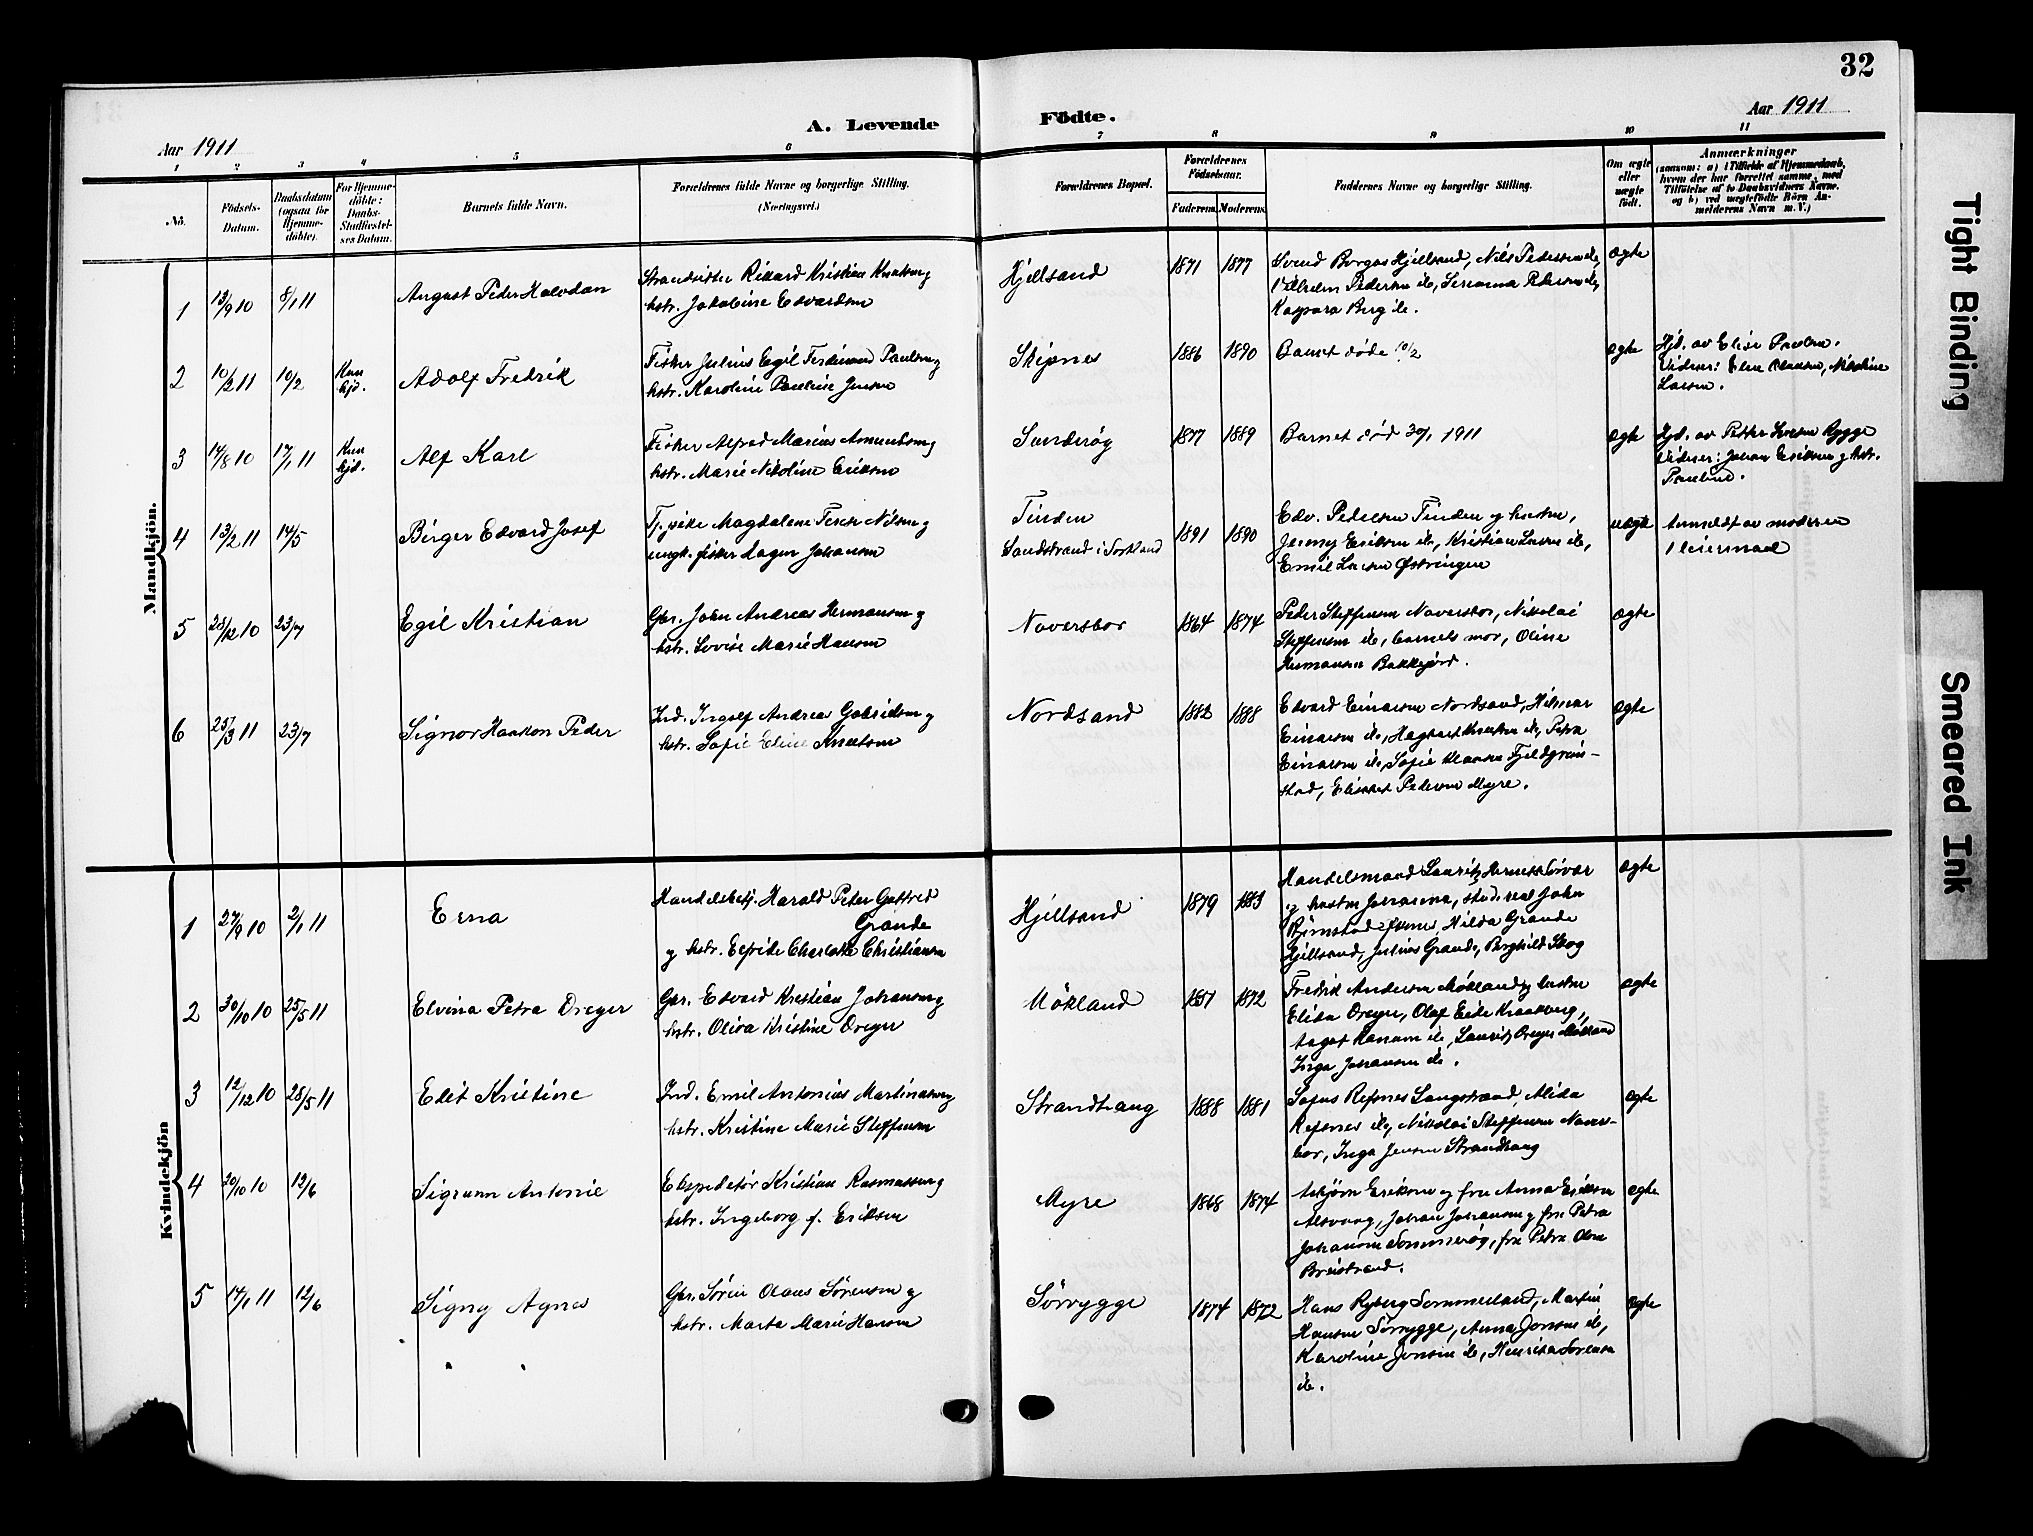 32
Aar 1911
A. Levende
Födte.
Aar 1911
1 2 3 4 5 6 7 8 9 10 11
No.
Födsels-
Datum.
Daabsdatum
(ogsaa for
Hjemme-
döbte).
For Hjemme-
döbte:
Daabs-
Stadfæstel-
ses Datum.
Barnets fulde Navn.
Forældrenes fulde Navne og borgerlige Stilling.
(Næringsvei.)
Forældrenes Bopæl.
Forældrenes
Födselsaar.
Faderens.
Moderens.
Faddernes Navne og borgerlige Stilling.
Om ægte
eller
uægte
födt.
Anmærkninger
(saasom: a) i Tilfælde af Hjemmedaab,
hvem der har forrettet samme, med
Tilföielse af to Daabsvidners Navne,
og b) ved uægtefödte Börn An-
melderens Navn m. V.)
Mandkjön.
1 13/9 10 8/1 11 August Peder Halvdan
Strandsidder Rikard Kristian Knutsen og
hstr. Jakobine Edvardsen
Hjellsand 1871 1877
Svend Borgos Hjellsand, Nils Pedersen do,
Vilhelm Pedersen do, Serianna Pedersen do,
Kaspara Berg do.
ægte
2 10/2 11 10/2 Kun
hjd. Adolf Fredrik
Fisker Julius Egil Ferdinand Paulsen og
hstr. Karoline Pauline Jensen
Skipnes 1886 1890 Barnet døde 10/2 ægte
Hjd. av Elise Paulsen.
Vidner: Elen Olausen,
Larsen.
3 14/8 10 17/1 11 Kun
hjd. Alf Karl
Fisker Alfred Marius Amundsen og
hstr. Marie Nikoline Eriksen
Sanderøg 1877 1889 Barnet død 30/1 1911 ægte
Hjd. av Petter Rygge
Vidner: Johan Eriksen og hstr.
Pauline.
4 13/2 11 14/5 Birger Edvard Josef
Tj.pike Magdalene Nilsen og
ungk. fisker Johansen
Tinden
Sandstrand i Sortland 1891 1890
Edv. Pedersen Tinden og hustru,
Jenny Eriksen do, Kristian Larsen do,
Emil Larsen Østringen
uægte
Anmeldt av moderen
1 leiermaal
5 28/12 10 23/7 Egil Kristian
Gbr. Johan Andreas Hermansen og
hstr. Lovise Marie Hansen
Naversbor 1864 1874
Peder Steffensen Naversbor, Nikolai
Steffensen do, barnets mor, Oline
Hermansen Bakkejord.
ægte
6 25/3 11 23/7 Signor Haakon Peder
Ind. Ingolf Andrea Gabrielsen og
hstr. Sofie Eline Knutsen
Nordsand 1882 1888
Edvard Einarsen Nordsand, Hilmar
Einarsen do, Hagbart Knutsen do, Petra
Einarsen do, Sofie Hansen Fjeldgren-
stad, Elisabet Pedersen Myre.
ægte
Kvindekjön
1 27/9 10 2/1 11 Erna
Handelsbetj. Harald Peter Gotfred
Grande
og hstr. Elfride Charlotte Christiansen
Hjellsand 1879 1883
Handelsmand Lauritz
og hustru Johanna, stud. real John
Hilda Grande
Hjellsand, Julius Grande, Borghild Skog
ægte
2 30/10 10 25/5 11 Elvina Petra Dreyer
Gbr. Edvard Kristian Johansen og
hstr. Oliva Kristine Dreyer
Møkland 1857 1872
Fredrik Andersen Møkland og hustru
Elida Dreyer, Olaf Eide Kraakberg,
Aagot Hansen do, Lauritz Dreyer Møkland
Inga Johansen do.
ægte
3 12/12 10 28/5 11 Edit Kristine
Ind. Emil Antonius Martinussen og
hstr. Kristine Marie Steffensen
Strandhaug 1888 1881
Sofus Refsnes Langstrand, Alida
Refsnes do, Nikolai Steffensen Navers-
bor, Inga Jensen Strandhaug
ægte
4 20/10 10 12/6 Sigrunn Antonie
Ekspeditør Kristian Rasmussen og
hstr. Ingeborg f. Eriksen
Myre 1868 1874
Asbjørn Eriksen og fru Anna Eriksen
Alsvaag, Johan Johansen og fru Petra
Johansen Sommerøg, fru Petra Olsen
Breistrand.
ægte
5 14/1 11 12/6 Signy Agnes
Gbr. Søren Olaus Sørensen og
hstr. Marta Marie Hansen
Sørrygge 1874 1872
Hans Ryberg Sommerland, Martin
Hansen Sørrygge, Anna Jensen do,
Karoline Jensen do, Henrika Sørensen
do.
ægte
Tight Binding
Smeared Ink